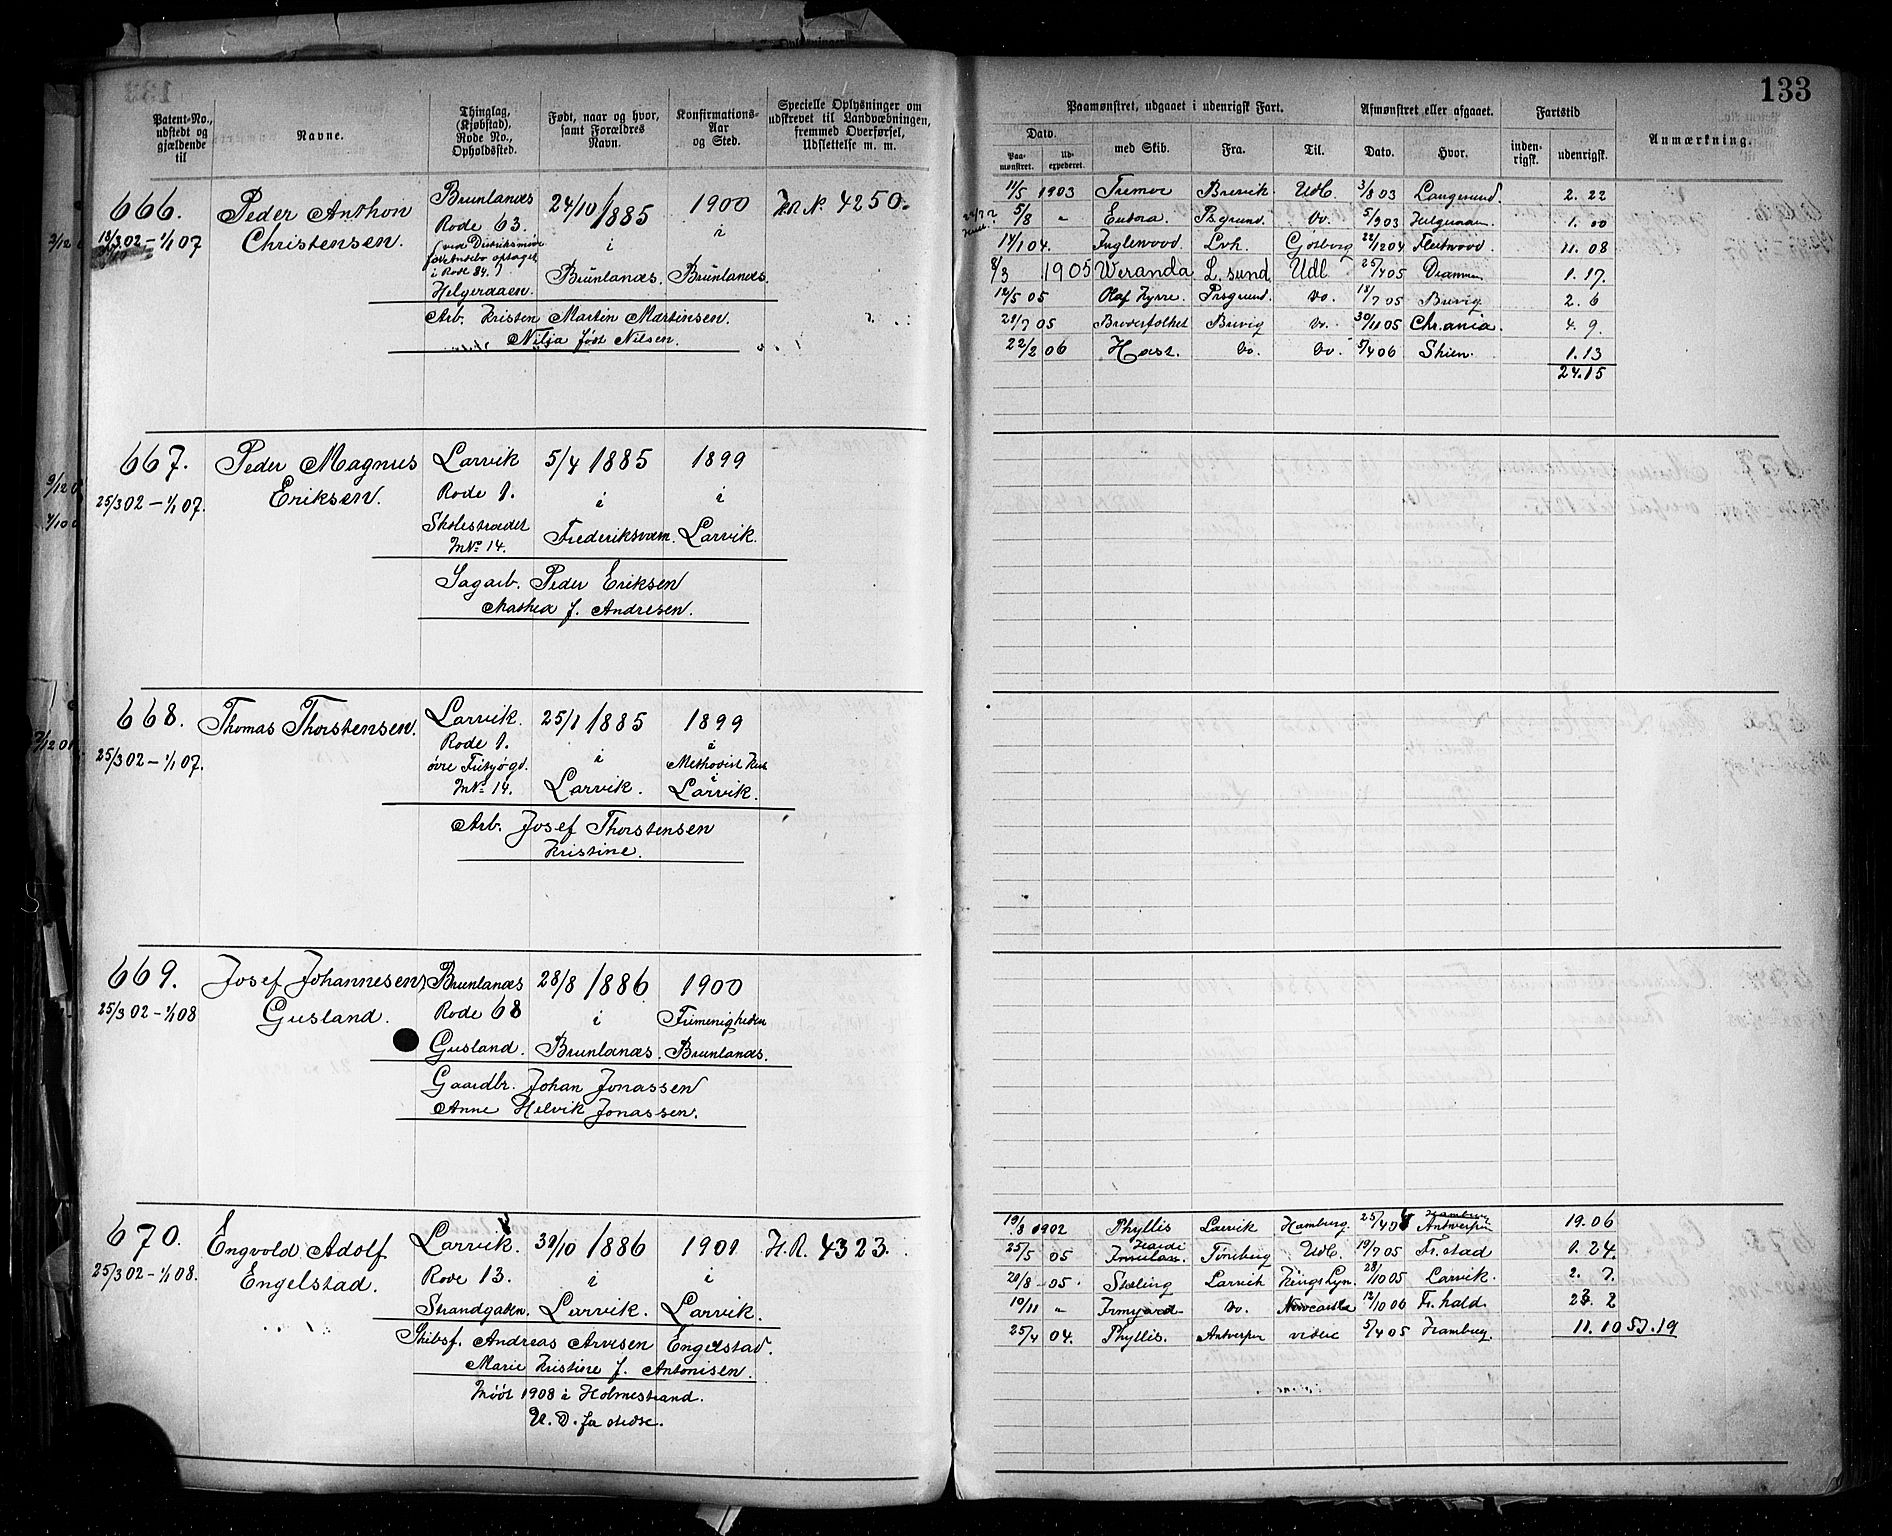 133
Patent-No., udstedt og gjældende til
Navne.
Thinglag, (Kjøbstad), Rode No., Opholdssted.
Født, naar og hvor, samt Forældres Navn.
Konfirmations-Aar og Sted.
Specielle Oplysninger om udskrevet til Landvæbningen, fremmed Overførsel, Udslettelse m. m.
Paamønstret, udgaaet i udenrigsk Fart.
Afmønstret eller afgaaet.
Fartstid
Anmærkning.
Dato.
Paa-mønstret.
Ud-expederet.
med Skib.
Fra.
Til.
Dato.
Hvor.
inden-rigsk.
udenrigsk.
666.
18/3 02 – 1/1 07
Peder Anthon
Christensen.
Brunlanæs
Rode 63.
i Rode 84.)
Helgeraaen.
24/10 1885
i
Brunlanæs.
1900
i
Brunlanæs.
4250.
Arb. Kristen Martin Martinsen.
Nilia født Nilsen.
11/5 1903 Tremor Brevik Udl. 3/8 03 Langesund. 2. 22
5/8 " Eudora. Psgrund. Do. 5/9 03 Helgeraaen. 1. 00
14/1 04. Inglewood. Lvh. Gøsborg 22/12 04 Fleetwood 11. 08
8/3 1905 Weranda L. sund Udl 25/4 05 Drammen 1. 17.
12/5 05 Olaf Kyrre. Prsgrund. Do. 18/7 05 Brevig 2. 6
21/7 05 Broderfolket Brevig Do. 30/11 05 Chr.ania. 4. 9.
22/2 06 Høst. Do. Do. 5/4 06 Skien. 1. 13
24. 15
667.
25/3 02 – 1/1 07.
Peder Magnus
Eriksen.
Larvik
Rode 1.
Skolestrædet
M No 14.
5/4 1885
i
Frederiksværn.
1899
i
Larvik.
Sagarb. Peder Eriksen
Mathea f. Andresen.
668.
25/3 02 – 1/1 07.
Thomas Thorstensen.
Larvik.
Rode 1.
øvre Fritzøgd.
M No 14.
25/1 1885
i
Larvik.
1899
i
Methodist Kirk
i
Larvik.
Arb. Josef Thorstensen
Kristine.
669.
25/3 02 – 1/1 08
Josef Johannesen
Gusland.
Brunlanæs
Rode 68
Gusland.
28/8 1886
i
Brunlanæs.
1900
Frimenigheden
Brunlanæs.
Gaardbr. Johan Jonassen
Anne Helvik Jonassen.
670.
25/3 02 – 1/1 08.
Engvold Adolf
Engelstad.
Larvik.
Rode 13.
Strandgaden.
30/10 1886
i
Larvik.
1901
i
Larvik.
H.R. 4323.
Skibsf. Andreas Arvesen Engelstad.
Marie Kristine f. Antonisen.
Mødt 1908 i Holmestrand.
U. D. fa
19/3 1902 Phyllis Larvik Hamburg. Antwerpen 19. 06
25/5 05 Tønsberg Udl. 19/7 05 Fr.stad 1. 24.
20/8 – 05. Sterling Larvik Kings Lyn. 28/10 05 Larvik. 2. 7.
10/11 " Irmgard Do. Newcastle 12/10 06 Fr.hald. 23. 2
25/4 04. Phyllis. Antwerpen videre 5/4 05 Hamburg. 11. 10 57. 19